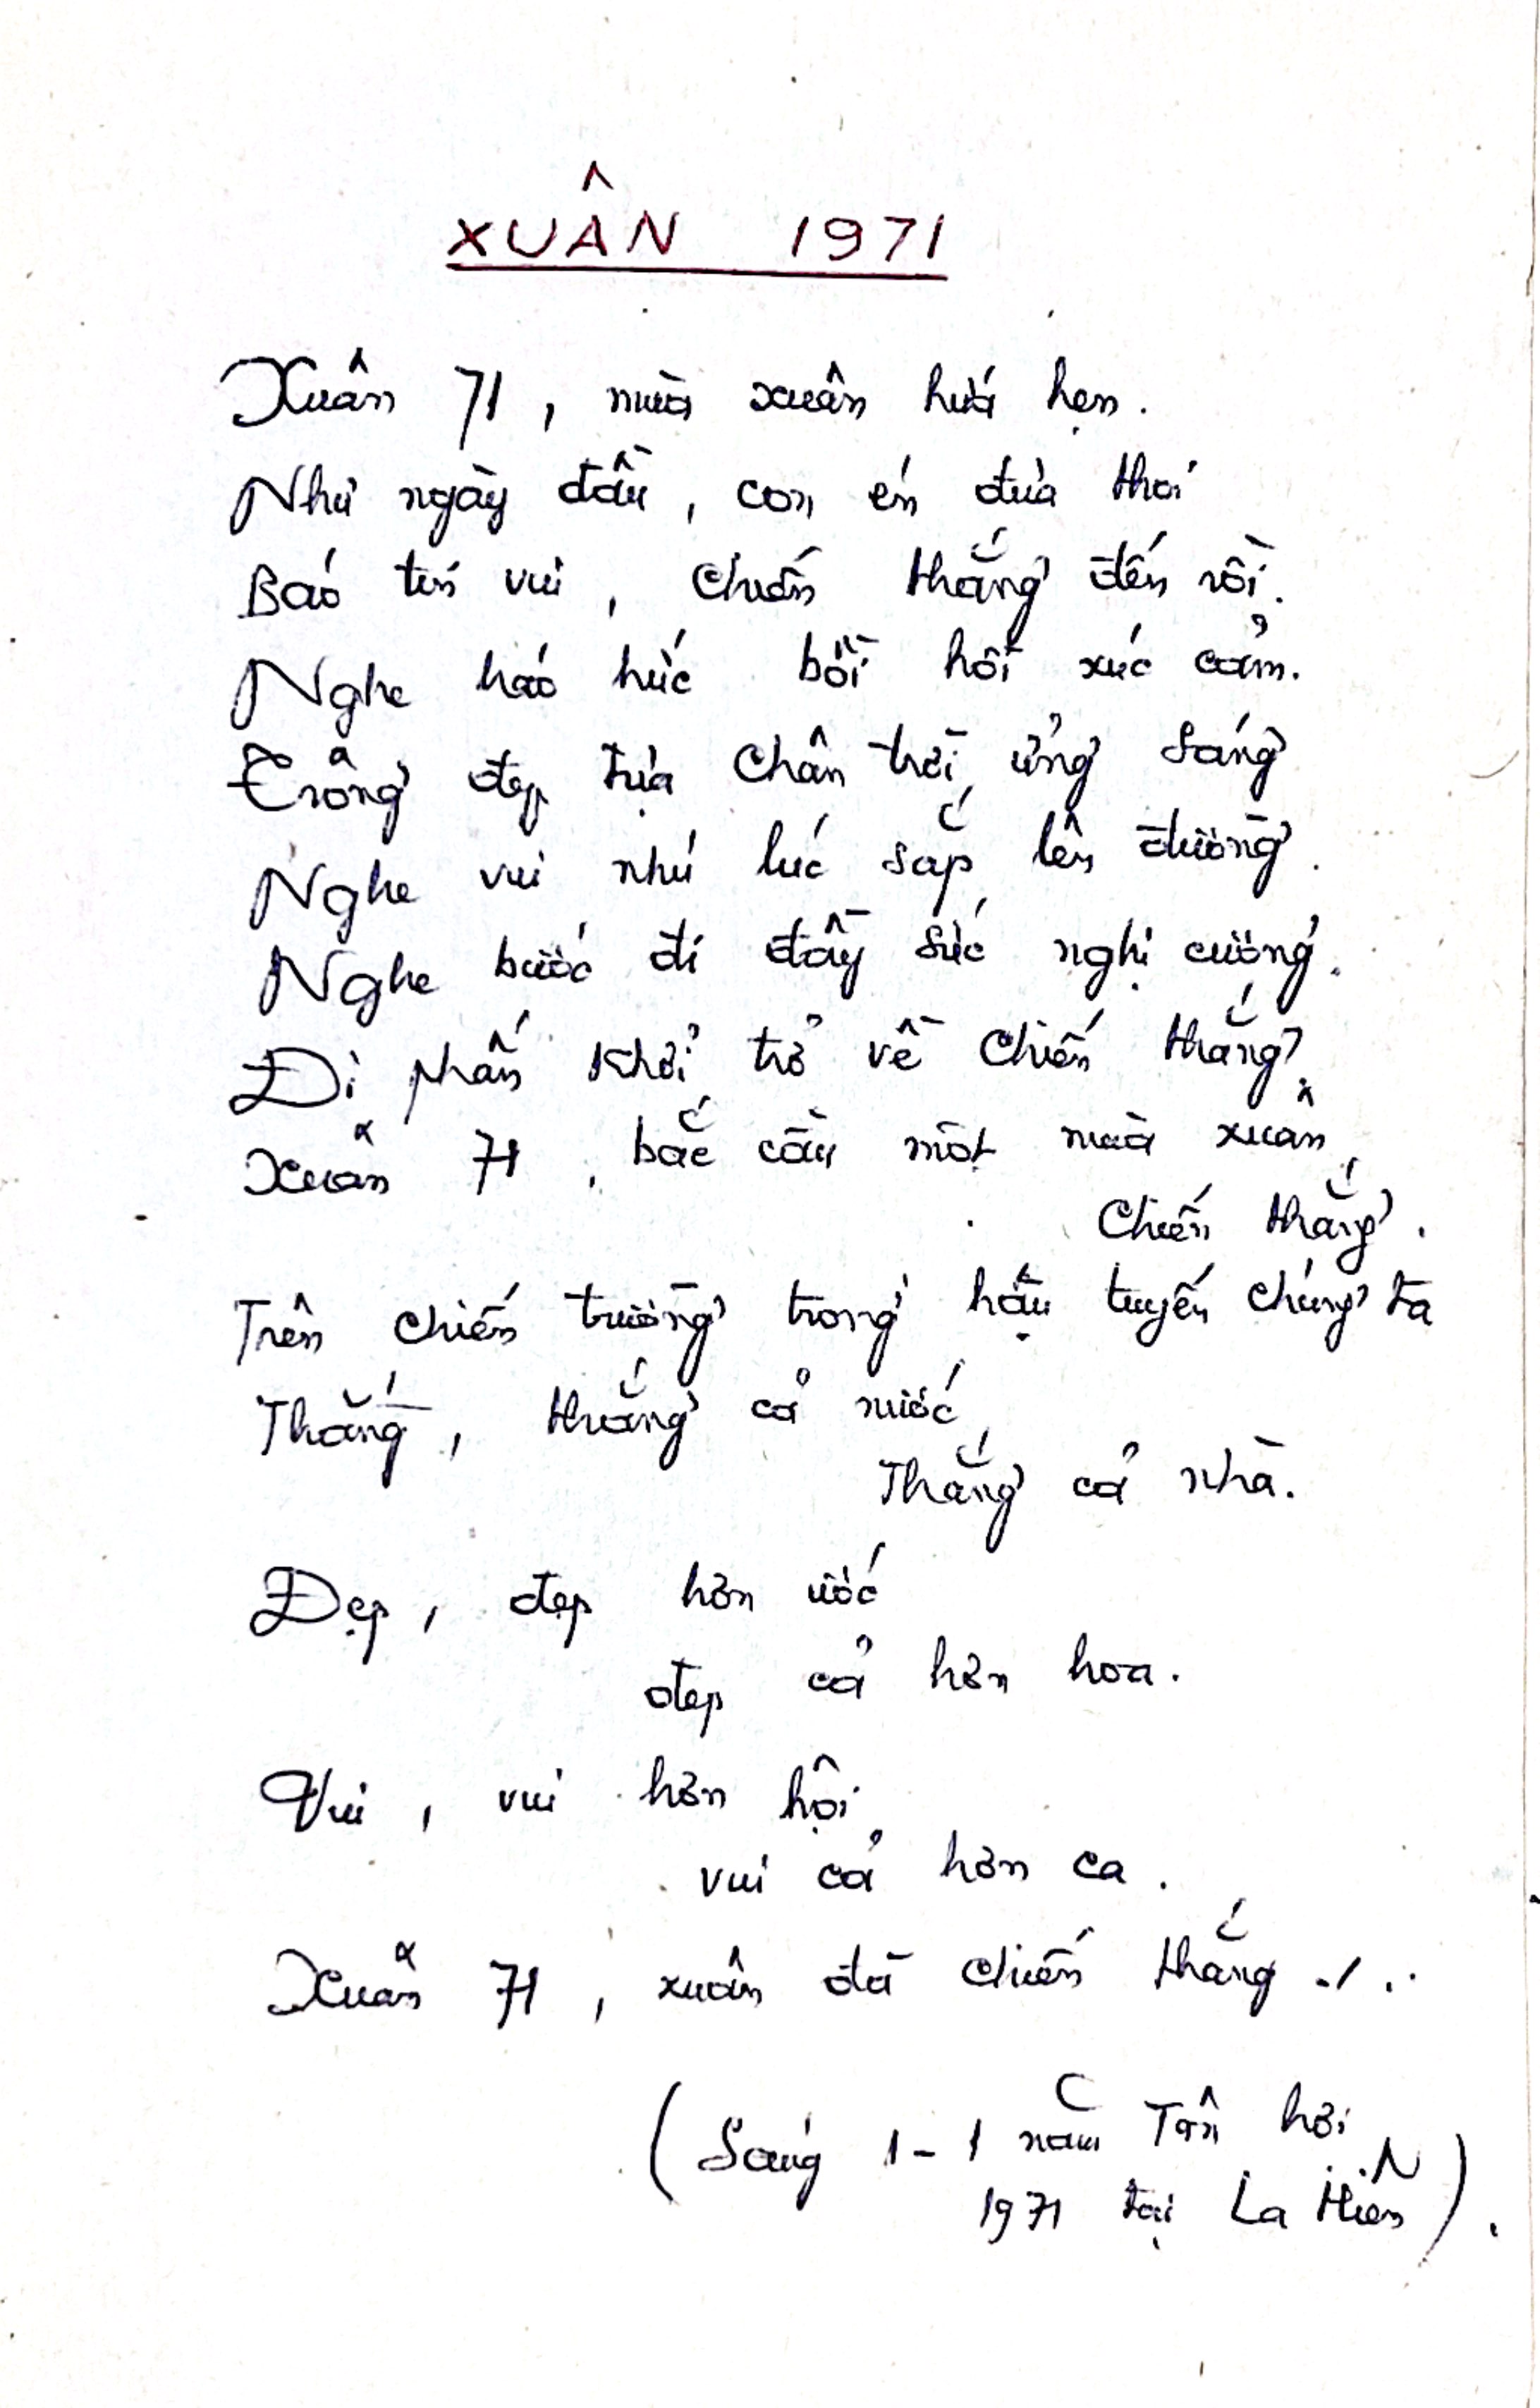 XUÂN 1971
Xuân 71, mùa xuân hứa hẹn.
Như ngày đầu, con én đưa thoi
Báo tin vui, chiến thắng đến rồi.
Nghe háo hức bồi hồi xúc cảm.
Trông đẹp tựa chân trời ửng sáng
Nghe vui như lúc sắp lên đường.
Nghe bước đi đầy sức nghị cường.
Đi phấn khởi trở về chiến thắng.
Xuân 71, bắc cầu một mùa xuân
Chiến thắng.
Trên chiến trường trong hậu tuyến chúng ta
Thắng, thắng cả nước
Thắng cả nhà.
Đẹp, đẹp hơn ước
đẹp cả hơn hoa.
Vui, vui hơn hội
vui cả hơn ca.
Xuân 71, xuân đã chiến thắng ./.
(Sáng 1-1 năm Tân hợi
1971 tại La Hiên).